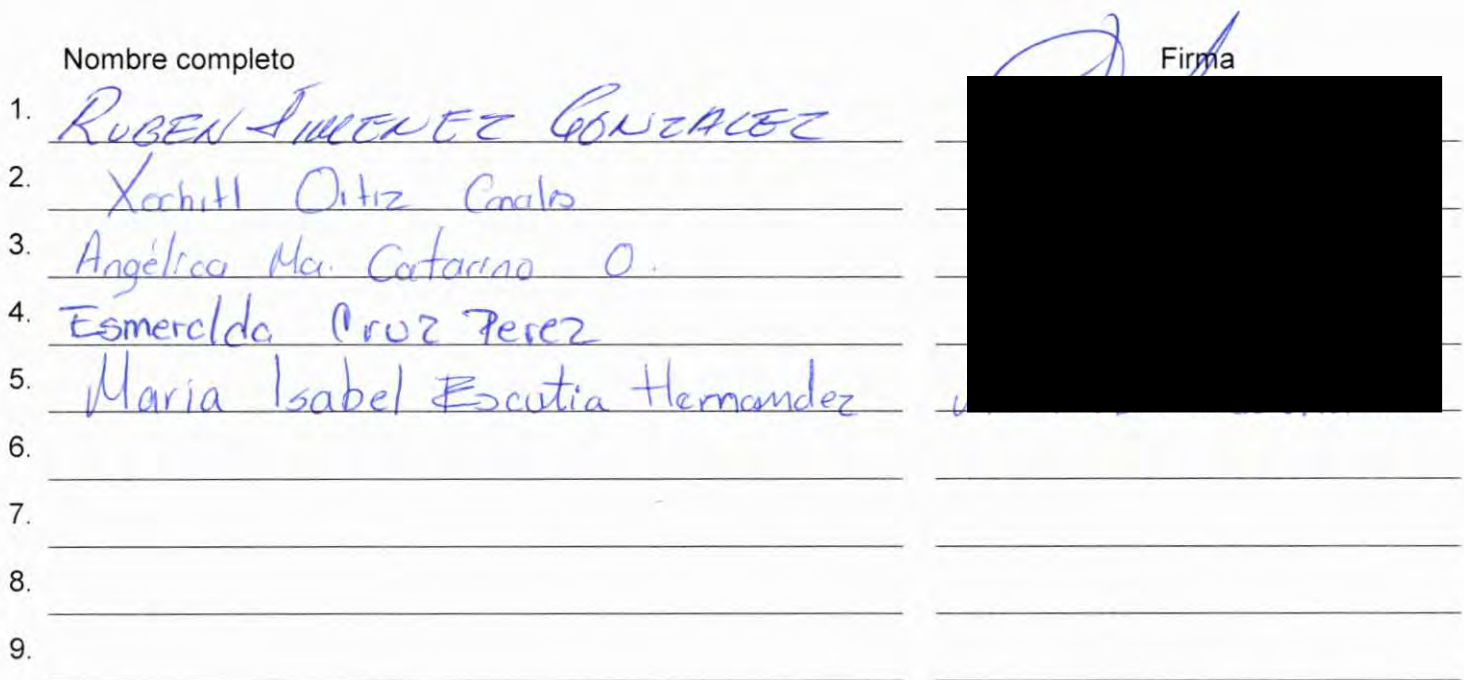 Nombre completo Firma
1. RUBEN JIMENEZ GONZALEZ
2. Xochitl Ortiz Canales
3. Angélica Ma. Catarino O.
4. Esmeralda Cruz Perez
5. Maria Isabel Escutia Hernandez
6.
7.
8.
9.